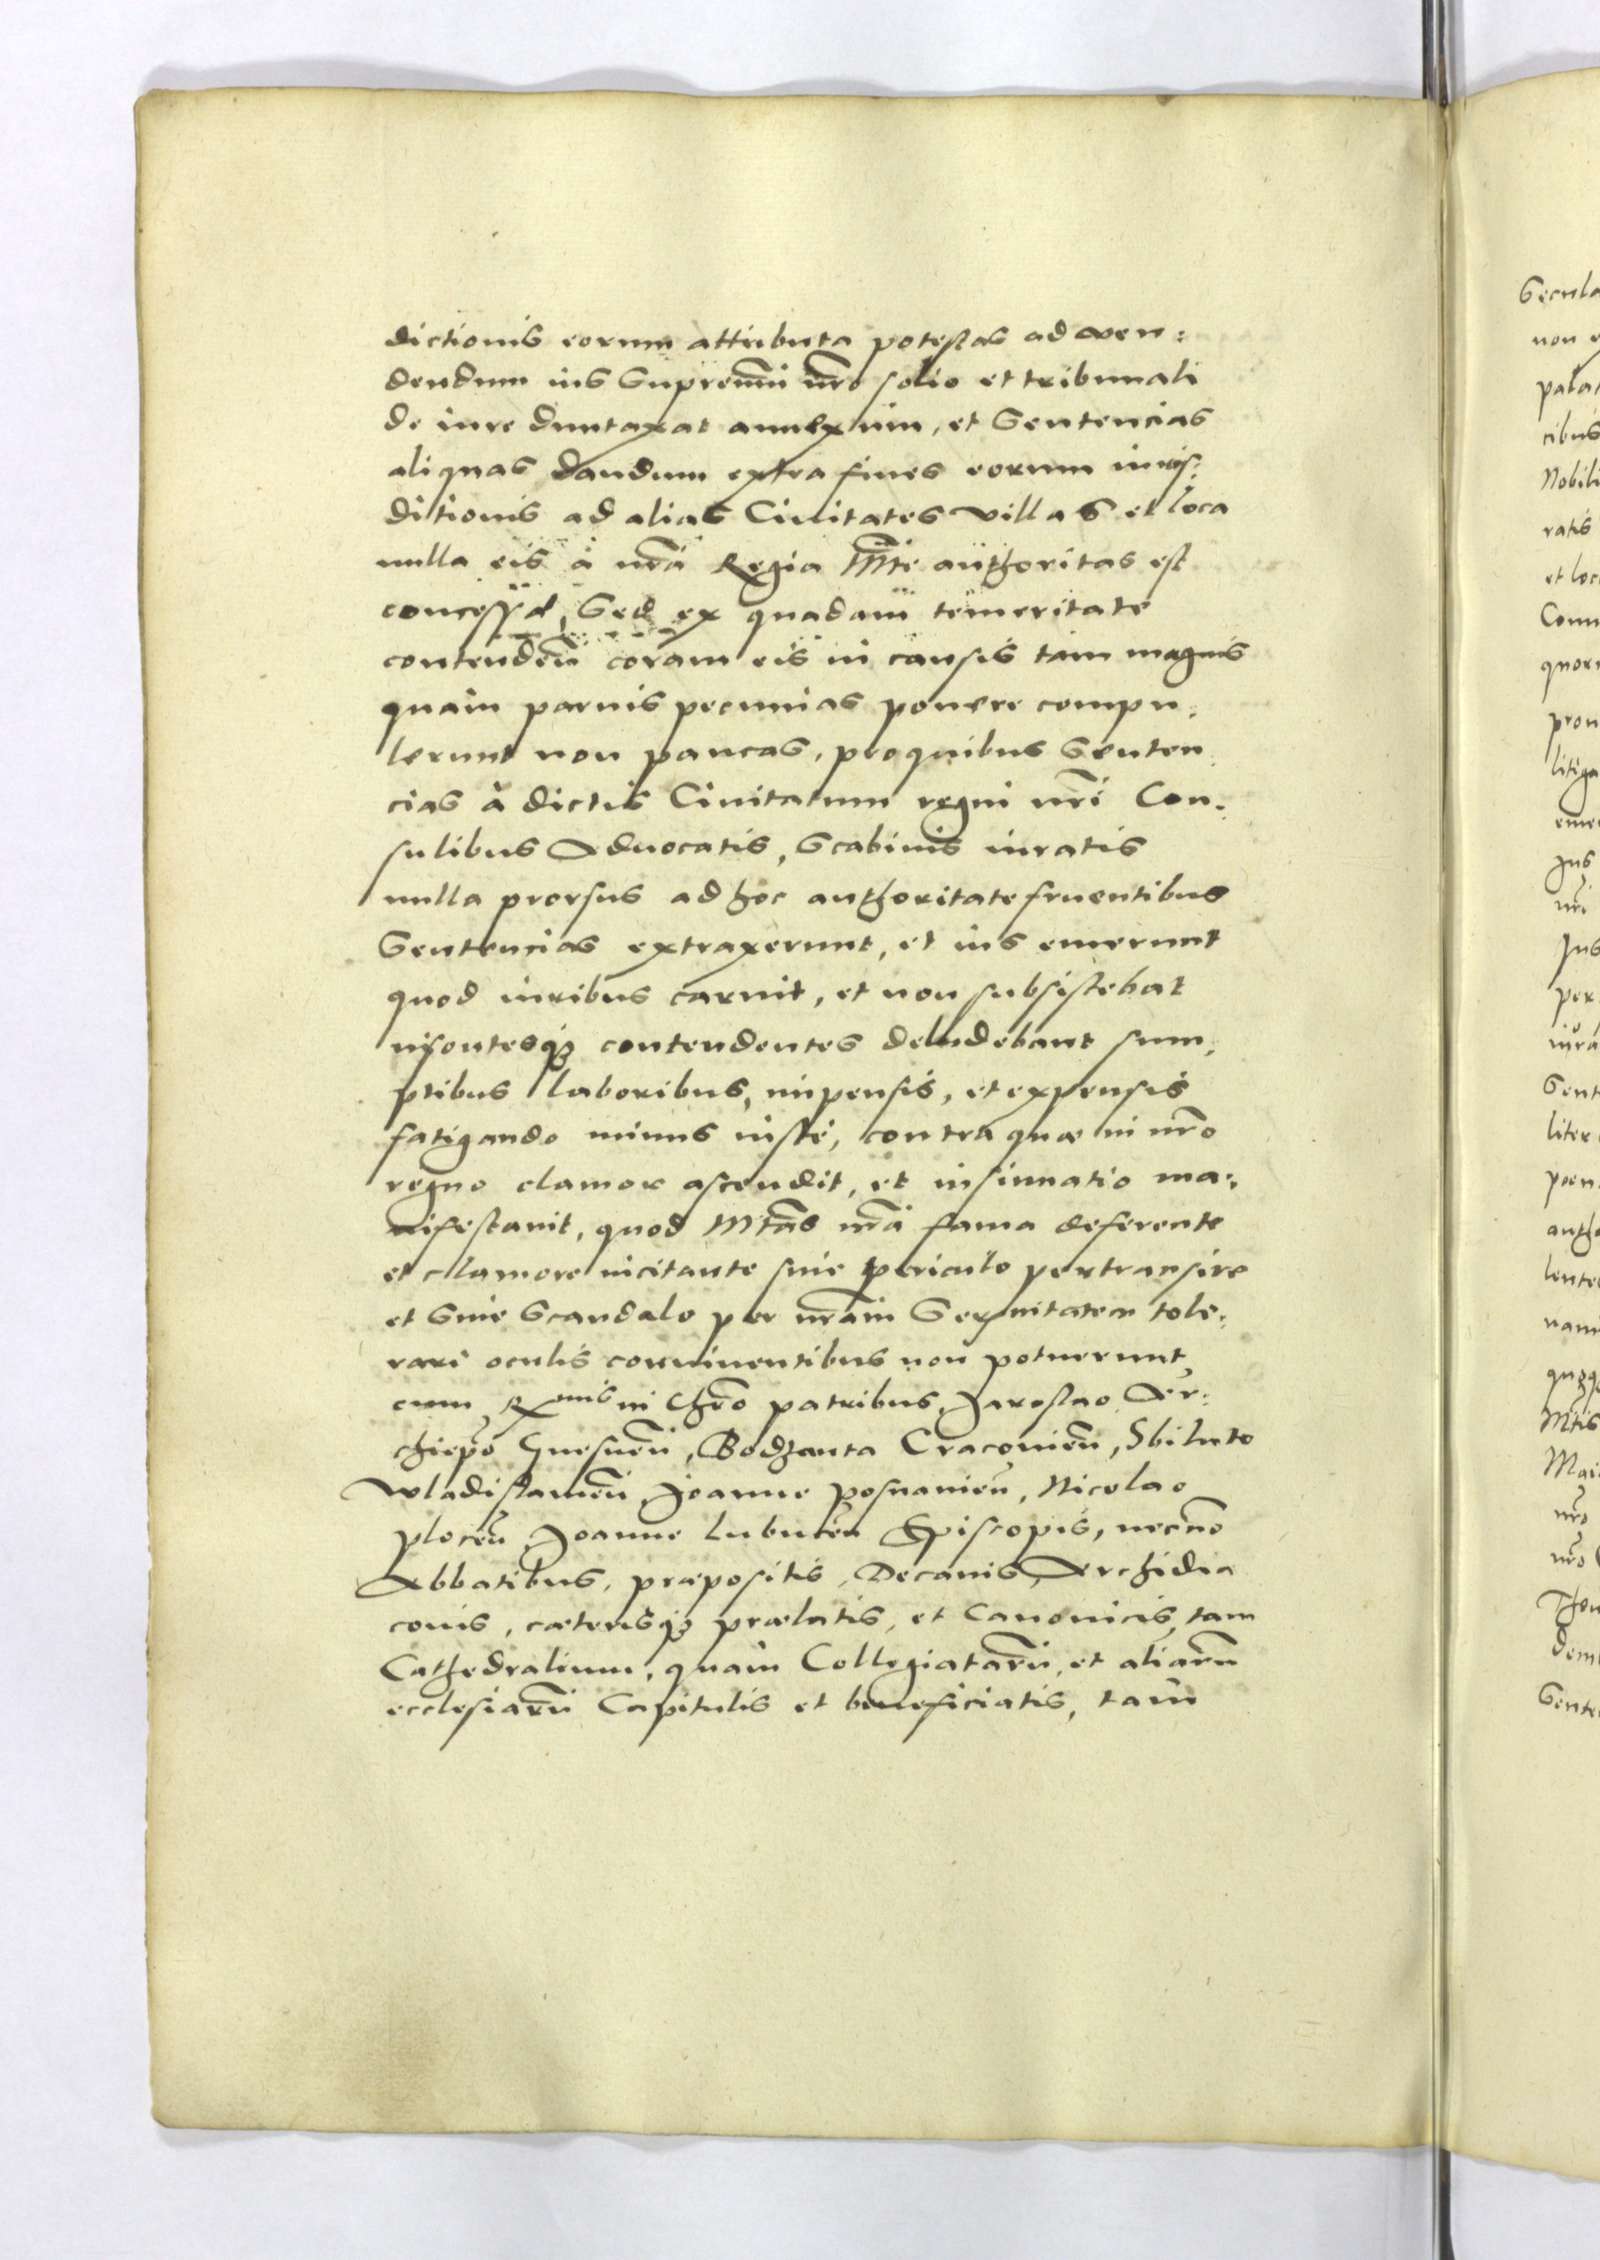 dictionis eorum attributa potestas ad ven:
dendum ius Supremũ nrõ solio et tribunali
de iure duntaxat annexum, et Sentencias
aliquas dandum extra fines eorum iuris:
ditionis ad alias Ciuitates villas et loca
nulla eis à nrã Regia Mtẽ authoritas est
concessa, Sed ex quadam temeritate
contendeñ coram eis in causis tam magnis
quàm paruis pecunias ponere compu:
lerunt non paucas, pro quibus Senten:
cias à dictis Ciuitatum regni nrĩ Con:
sulibus Aduocatis, Scabinis iuratis
nulla prorsus ad hoc authoritate fruentibus
Sentencias extraxerunt, et ius emerunt
quod iuribus caruit, et non subsistebat
insontesq3 contendentes deludebant sum:
ptibus laboribus, impensis, et expensis
fatigando minus iustè, contra quæ in nrõ
regno clamor ascendit, et insinuatio ma:
nifestauit, quod Mtãs nrã fama deferente
et clamore incitante sine periculo pertransire
et Sine Scandalo per nrãm Serenitatem tole:
rari oculis conniuentibus non potuerunt
cum Rmis in Chrõ patribus, Jaroslao Ar:
chiepõ Gnesneñ, Bodzanta Cracovieñ, Sbiluto
Wladislauieñ, Joanne posnanieñ, Nicolao
ploceñ, Joanne lubuceñ Episcopis, necnõ
Abbatibus, præpositis, Decanis, Archidia
conis, cæterisq3 prælatis, et Canonicis, tam
Cathedralium, quàm Collegiatarũ, et aliarũ
ecclesiarũ Capitulis et beneficiatis, tam